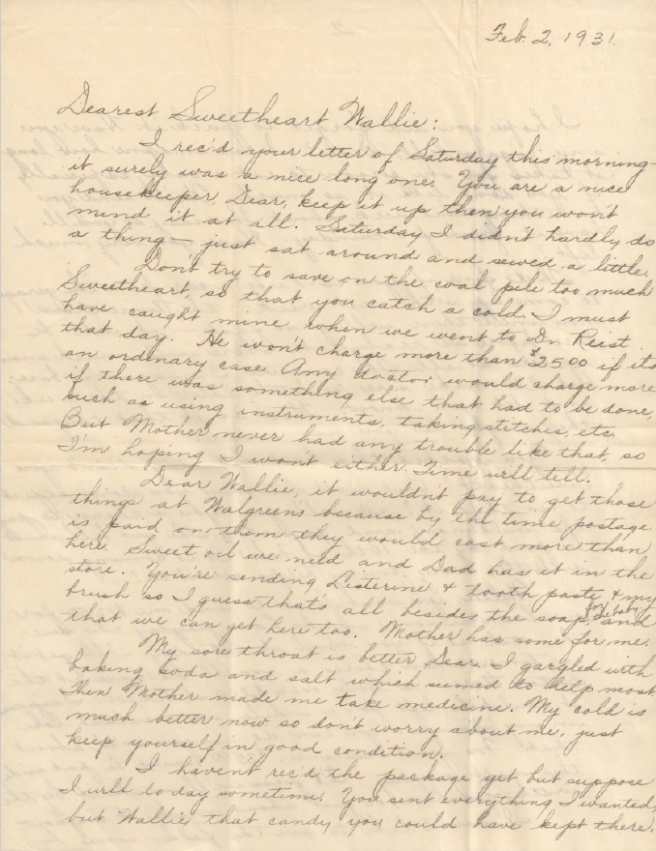 Feb. 2, 1931.
Dearest Sweetheart Wallie:
I rec'd your letter of Saturday this morning-
it surely was a nice long one. You are a nice
housekeeper, Dear, keep it up then you won't
mind it at all. Saturday I didn't hardly do
a thing — just sat around and sewed a little.
Don't try to save on the coal pile too much
Sweetheart, so that you catch a cold. I must
have caught mine when we went to Dr. Reist
that day. He won't charge more than $25.00 if its
an ordinary case. Any doctor would charge more
if there was something else that had to be done,
such as using instruments, taking stitches, etc.
But Mother never had any trouble like that, so
I'm hoping I won't either. Time will tell.
Dear Wallie, it wouldn't pay to get those
things at Walgreens because by the time postage
is paid on them they would cost more than
here. Sweet oil we need and Dad has it in the
store. You're sending Listerine & tooth paste & my
brush so I guess that's all besides the soap for the baby and
that we can get here too. Mother has some for me.
My sore throat is better Dear. I gargled with
baking soda and salt which seemed to help most.
Then Mother made me take medicine. My cold is
much better now so don't worry about me, just
keep yourself in good condition.
I haven't rec'd the package yet but suppose
I will today sometime. You sent everything I wanted,
but Wallie that candy you could have kept there.